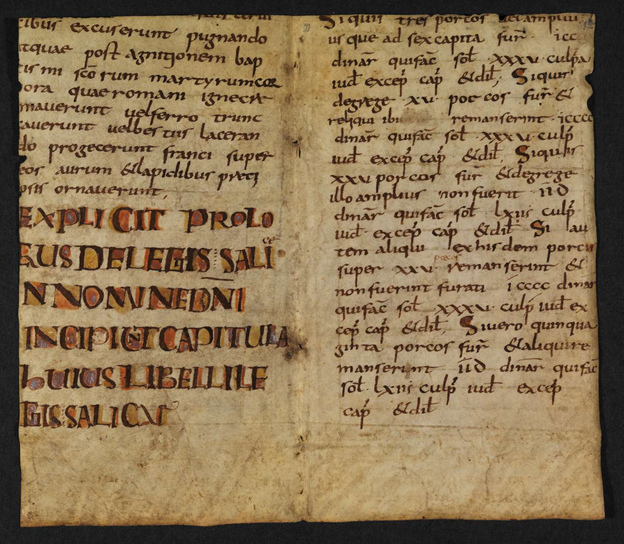 ribus excuserunt pugnando
tquae post agnitionem bap
tis mi sco rum martyrum cor
pora quae romani igne cre
mauerunt uel ferro trunc
cauerunt uel bestiis laceran
do progecerunt franci super
eos aurum & lapidibus preti
osis ornauerunt.
EXPLICIT PROLO
GUS DE LEGIS SALI
ce
IN NOMINE DNI
INCIPIENT CAPITULA
HUIUS LIBELLI LE
GIS SALICAE
Si quis tres porcos uel ampliu
usque ad sex capita fur icc
dinar qui fac sol xxxv culpa
iud excep cap & dil Si quis
de grege xv porcos fur &
reliqui ibi remanserint icccc
dinar qui fac sol xxxv culp
iud excep cap & dil Si quis
xxv porcos fur & de grege
illo amplius non fuerit iiD
dinar qui fac sol lxiis culp
iud excep cap & dil Si au
tem aliqui ex his dem porcis
porcos
super xxv remanserint &
non fuerint furati icccc dinar
qui fac sol xxxv culp iud ex
cep cap & dil Si uero quinqua
ginta porcos fur & aliqui re
manserint iiD dinar qui fac
sol lxiis culp iud excep
cap & dil